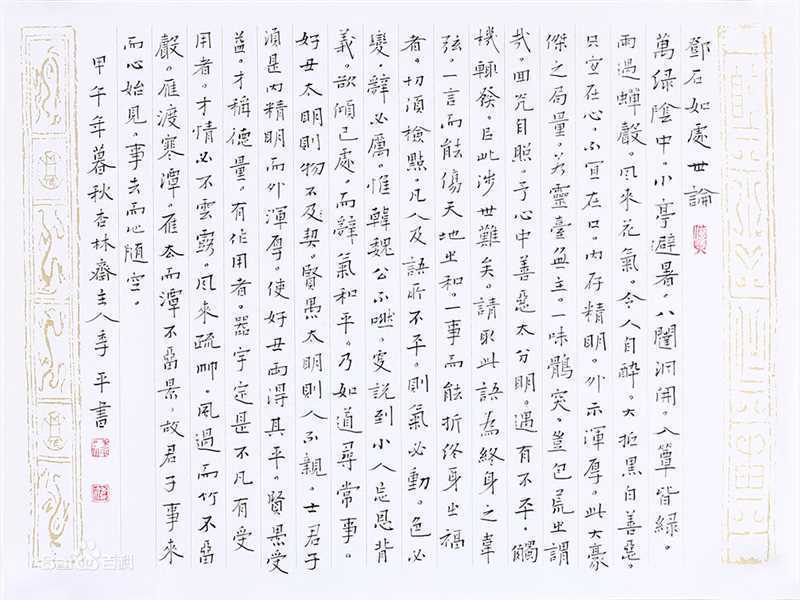 鄧石如處世論
萬綠陰中。小亭避暑。八闥洞開。入簟皆綠。
雨過蟬聲。風來花氣。令人自醉。大抵黑白善惡。
只宜在心。不宜在口。內存精明。外示渾厚。此大豪
傑之局量。若靈臺無主。一味鶻突。豈包荒之謂
哉。回光自照。予心中善惡太分明。遇有不平。觸
機輒發。以此涉世難矣。請取此語為終身之韋
弦。一言而能傷天地之和。一事而能折終身之福
者。切須檢點。凡人及語所不平。則氣必動。色必
變。辭必厲。惟韓魏公不然。更說到小人忘恩背
義。欲傾己處。而辭氣和平。乃如道尋常事。
好丑太明則物不及契。賢愚太明則人不親。士君子
須是內精明而外渾厚。使好丑兩得其平。賢愚受
益。才稱德量。有作用者。器宇定是不凡有受
用者。才情必不雲露。風來疏竹。風過而竹不留
聲。雁渡寒潭。雁去而潭不留景。故君子事來
而心始見。事去而心隨空。
甲午年暮秋杏林齋主人季平書
Baidu百科